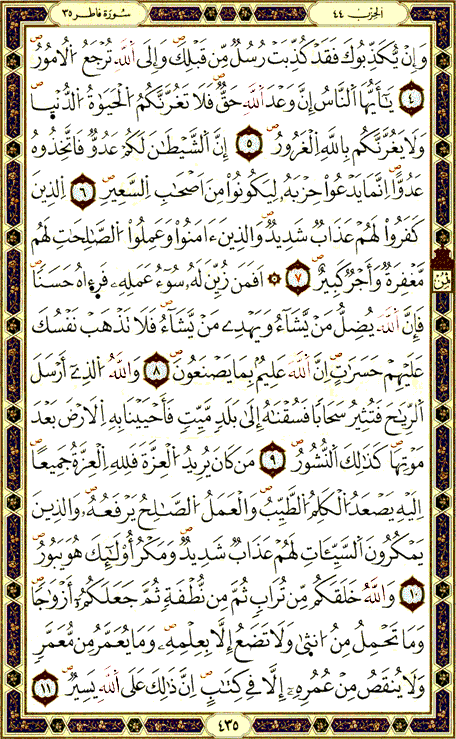 سُورَة فَاطِر ٣٥
الحِزب ٤٤
وَإِنْ يُّكَذِّبُوكَ فَقَدْ كُذِّبَتْ رُسُلٌ مِّن قَبْلِكَ وَإِلَى اَللَّهِ تُرْجَعُ الُامُورُ
٤ يَٰٓأَيُّهَا اَلنَّاسُ إِنَّ وَعْدَ اَللَّهِ حَقٌّ فَلَا تَغُرَّنَّكُمُ الْحَيَوٰةُ الدُّنْيَا
وَلَا يَغُرَّنَّكُم بِاللَّهِ اِلْغَرُورُ ٥ إِنَّ اَلشَّيْطَٰنَ لَكُمْ عَدُوٌّ فَاتَّخِذُوهُ
عَدُوًّا اِنَّمَا يَدْعُواْ حِزْبَهُۥ لِيَكُونُواْ مِنَ اَصْحَٰبِ اِلسَّعِيرِ ٦ اِلذِينَ
كَفَرُواْ لَهُمْ عَذَابٌ شَدِيدٌ وَالذِينَ ءَامَنُواْ وَعَمِلُواْ اُلصَّٰلِحَٰتِ لَهُم
مَّغْفِرَةٌ وَأَجْرٌ كَبِيرٌ ٧ ۞ اَفَمَن زُيِّنَ لَهُۥ سُوٓءُ عَمَلِهِۦ فَرَءِاهُ حَسَنًا
فَإِنَّ اَللَّهَ يُضِلُّ مَنْ يَّشَآءُ وَيَهْدِے مَنْ يَّشَآءُ فَلَا تَذْهَبْ نَفْسُكَ
عَلَيْهِمْ حَسَرَٰتٍ اِنَّ اَللَّهَ عَلِيمٌ بِمَا يَصْنَعُونَ ٨ وَاللَّهُ اُلذِےٓ أَرْسَلَ
اَلرِّيَٰحَ فَتُثِيرُ سَحَابًا فَسُقْنَٰهُ إِلَىٰ بَلَدٍ مَّيِّتٍ فَأَحْيَيْنَا بِهِ اِلَارْضَ بَعْدَ
مَوْتِهَا كَذَٰلِكَ اَلنُّشُورُ ٩ مَن كَانَ يُرِيدُ اُلْعِزَّةَ فَلِلهِ اِلْعِزَّةُ جَمِيعًا
اِلَيْهِ يَصْعَدُ اُلْكَلِمُ اُلطَّيِّبُ وَالْعَمَلُ اُلصَّٰلِحُ يَرْفَعُهُۥ وَالذِينَ
يَمْكُرُونَ اَلسَّيِّـَٔاتِ لَهُمْ عَذَابٌ شَدِيدٌ وَمَكْرُ أُوْلَٰٓئِكَ هُوَ يَبُورُ
١٠ وَاللَّهُ خَلَقَكُم مِّن تُرَابٍ ثُمَّ مِن نُّطْفَةٍ ثُمَّ جَعَلَكُمُۥٓ أَزْوَٰجًا
وَمَا تَحْمِلُ مِنُ ا۟نث۪ىٰ وَلَا تَضَعُ إِلَّا بِعِلْمِهِۦ وَمَا يُعَمَّرُ مِن مُّعَمَّرٍ
وَلَا يُنقَصُ مِنْ عُمُرِهِۦٓ إِلَّا فِے كِتَٰبٍ اِنَّ ذَٰلِكَ عَلَى اَللَّهِ يَسِيرٌ ١١
ثُمُن
٤٣٥